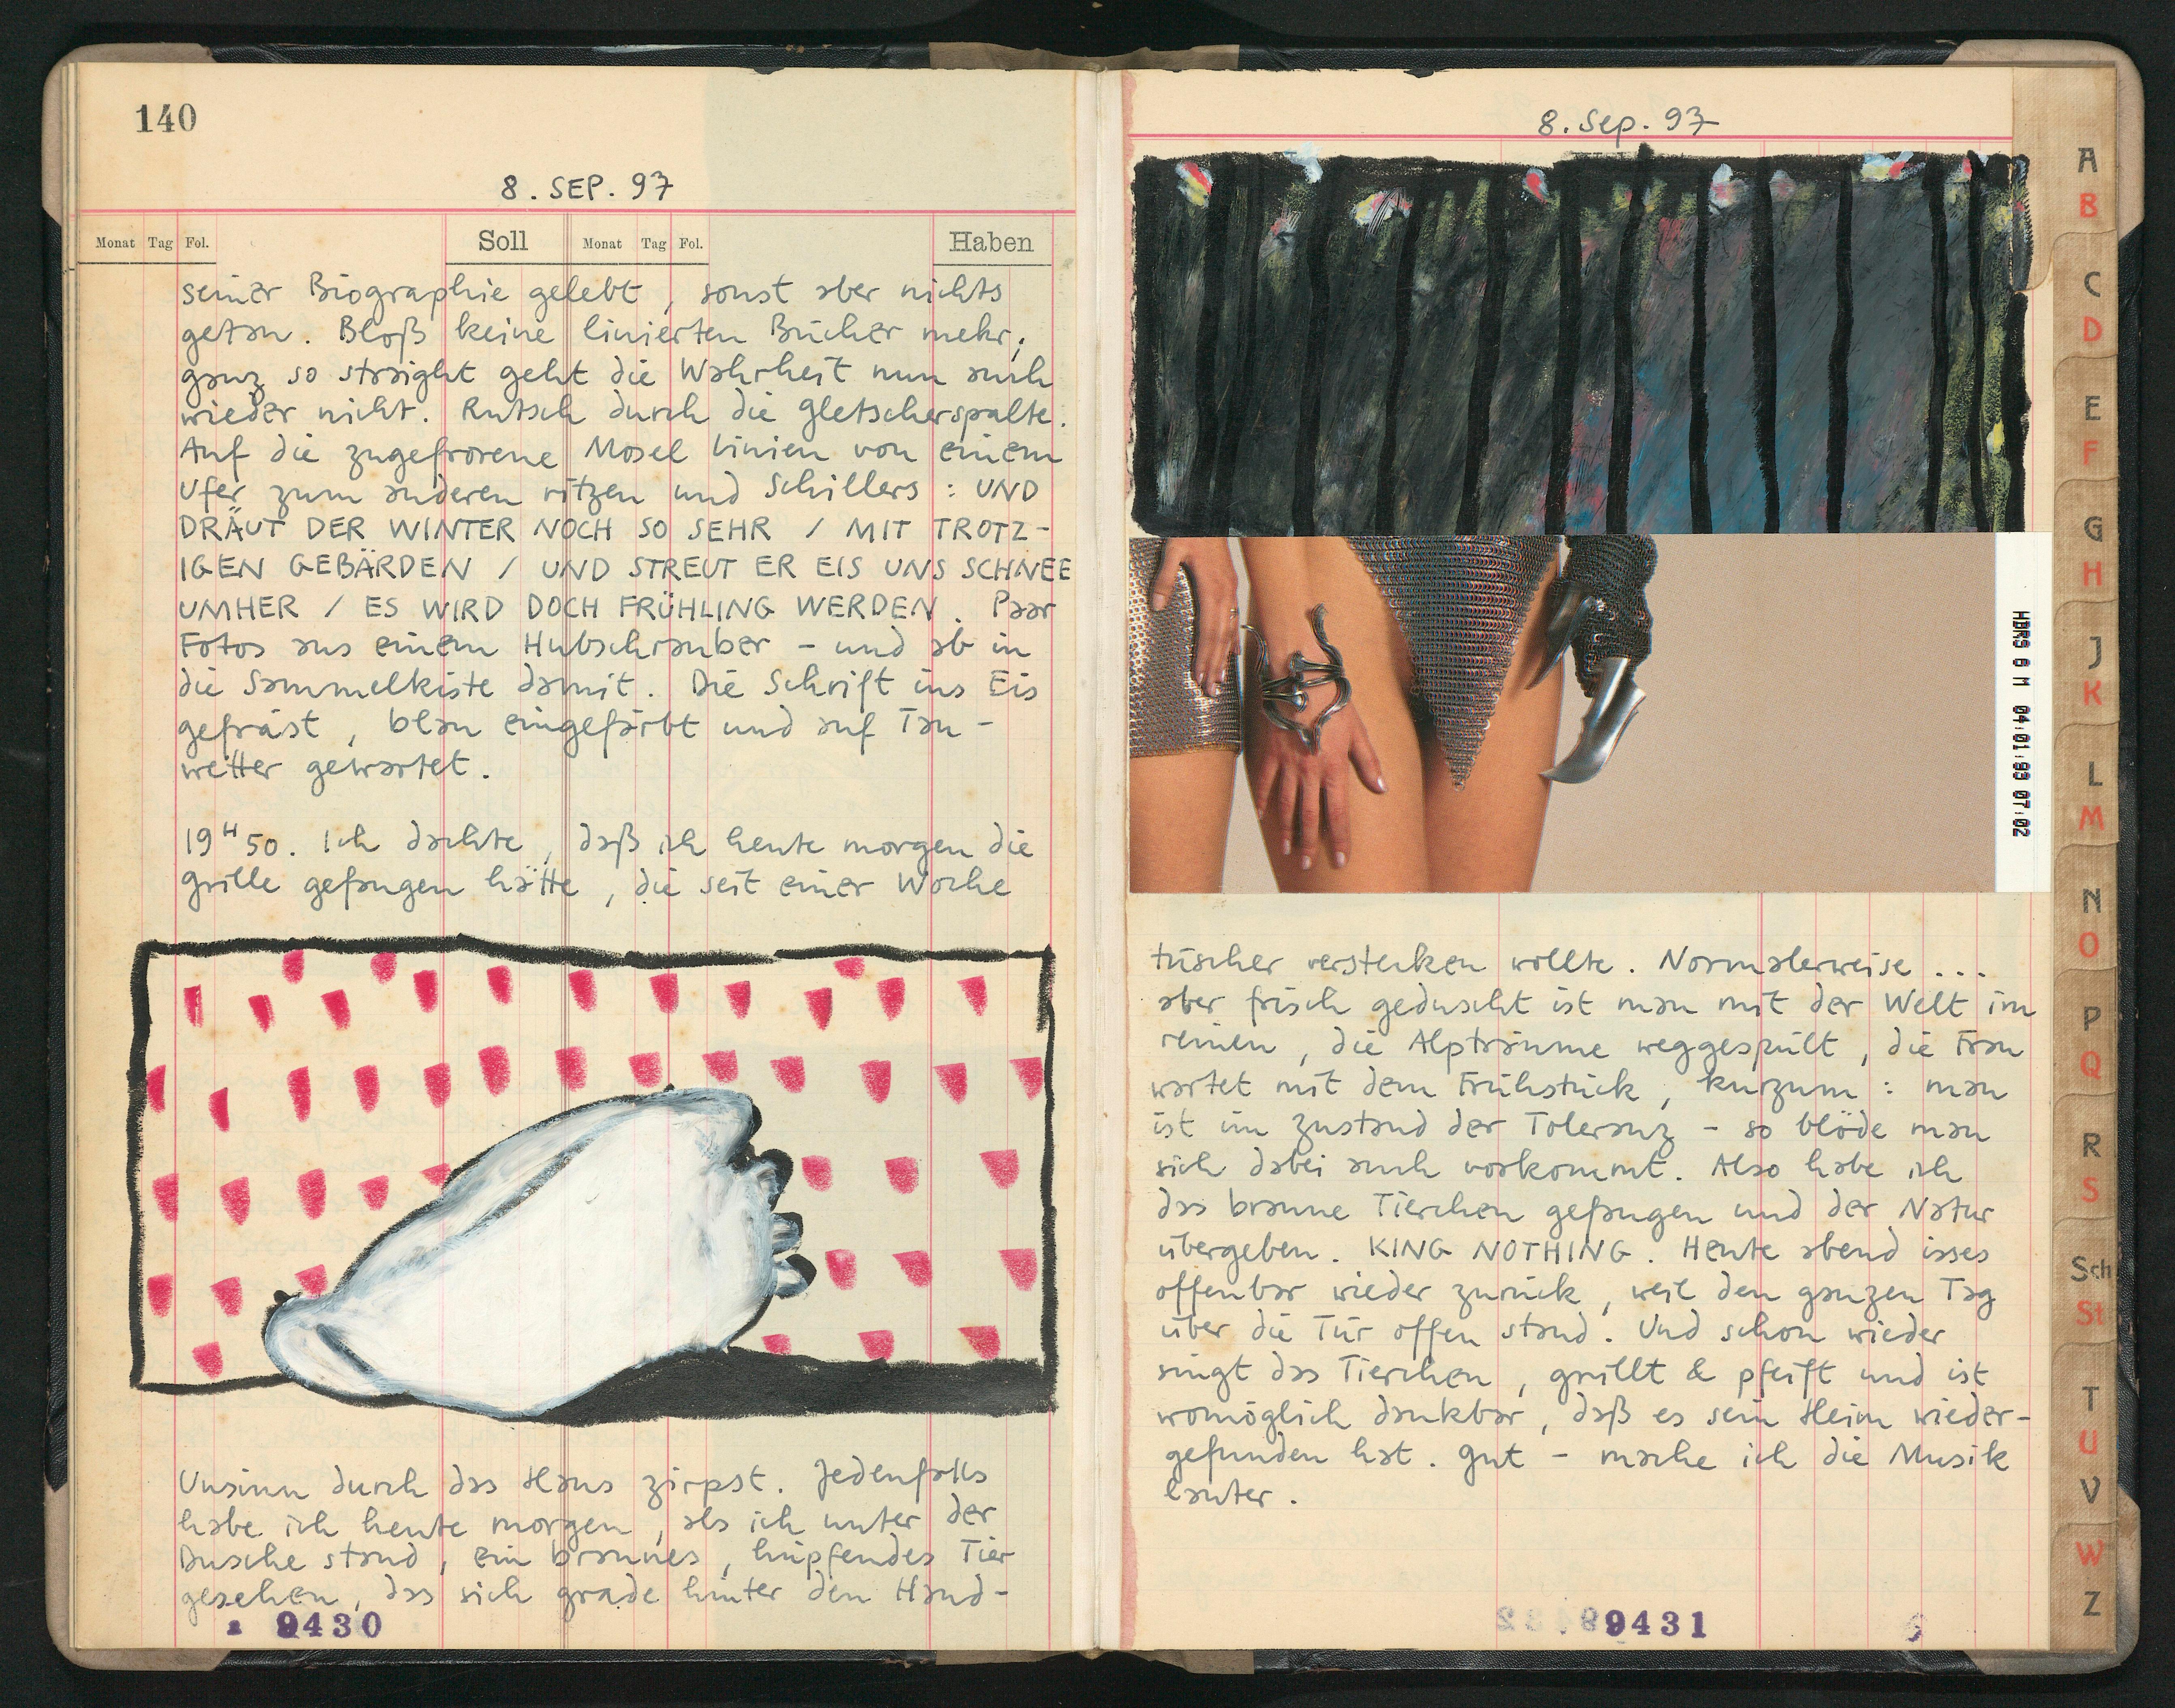 140
8. SEP. 97
Monat Tag Fol. Soll Monat Tag Fol. Haben
seiner Biographie gelebt, sonst aber nichts
getan. Bloß keine linierten Bücher mehr;
ganz so straight geht die Wahrheit nun auch
wieder nicht. Rutsch durch die Gletscherspalte.
Auf die zugefrorene Mosel Linien von einem
Ufer zum anderen ritzen und Schillers: UND
DRÄUT DER WINTER NOCH SO SEHR / MIT TROTZ-
IGEN GEBÄRDEN / UND STREUT ER EIS UNS SCHNEE
UMHER / ES WIRD DOCH FRÜHLING WERDEN. Paar
Fotos aus einem Hubschrauber - und ab in
die Sammelkiste damit. Die Schrift ins Eis
gefräst, blau eingefärbt und auf Tau-
wetter gewartet.
19H50. Ich dachte, daß ich heute morgen die
Grille gefangen hätte, die seit einer Woche
Unsinn durch das Haus zirpst. Jedenfalls
habe ich heute morgen, als ich unter der
Dusche stand, ein braunes, hüpfendes Tier
gesehen, das sich grade hinter den Hand-
9430
8. Sep. 97
HDRS 6 M 04:01:99 07:02
tüscher verstecken wollte. Normalerweise ...
aber frisch geduscht ist man mit der Welt im
reinen, die Alpträume weggespült, die Frau
wartet mit dem Frühstück, kurzum: man
ist im Zustand der Toleranz - so blöde man
sich dabei auch vorkommt. Also habe ich
das braune Tierchen gefangen und der Natur
übergeben. KING NOTHING. Heute abend isses
offenbar wieder zurück, weil den ganzen Tag
über die Tür offen stand. Und schon wieder
singt das Tierchen, grillt & pfeift und ist
womöglich dankbar, daß es sein Heim wieder-
gefunden hat. Gut - mache ich die Musik
lauter.
9431
A
B
C
D
E
F
G
H
J
K
L
M
N
O
P
Q
R
S
Sch
St
T
U
V
W
Z